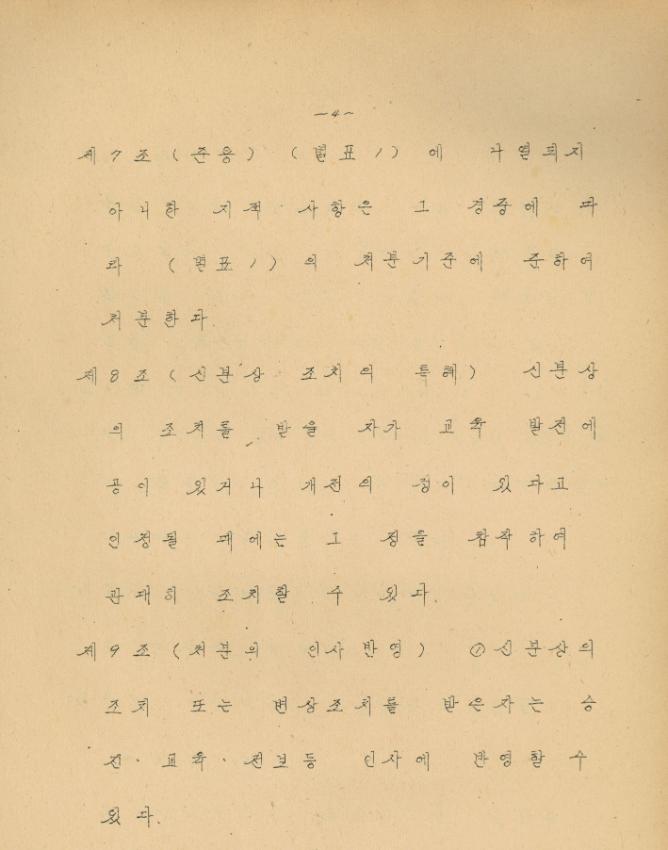 -4-
제7조(준용) (별표1)에 나열되지
아니한 지적 사항은 그 경중에 따
라 (별표1)의 처분기준에 준하여
처분한다.
제8조(신분상 조치의 특례) 신분상
의 조치를 받을 자가 교육 발전에
공이 있거나 개전의 정이 있다고
인정될 때에는 그 정을 참작하여
관대히 조치할 수 있다.
제9조(처분의 인사 반영) ①신분상의
조치 또는 변상조치를 받은자는 승
진·교육·전보등 인사에 반영할 수
있다.